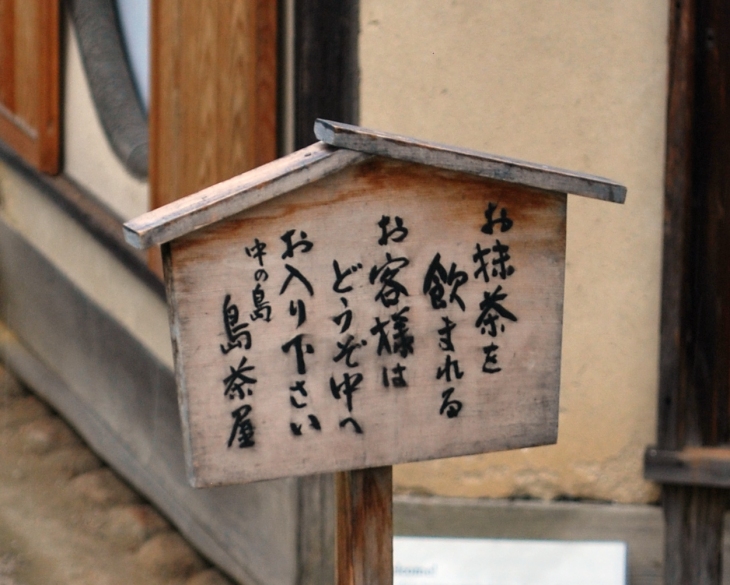 お抹茶を
飲まれる
お客様は
どうぞ中へ
お入り下さい
中の島
島茶屋